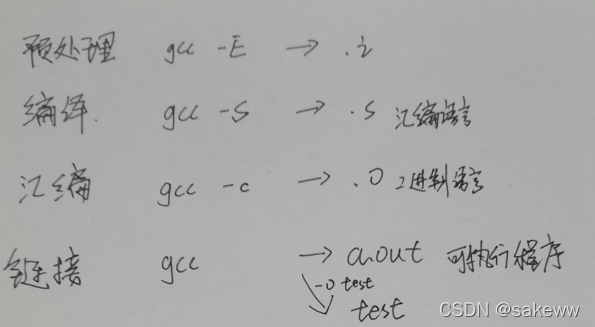 预处理 gcc -E → .i
编译. gcc -S → .s 汇编语言
汇编 gcc -c → .o 2进制语言
链接 gcc → a.out 可执行程序
-o test
test
CSDN @sakeww